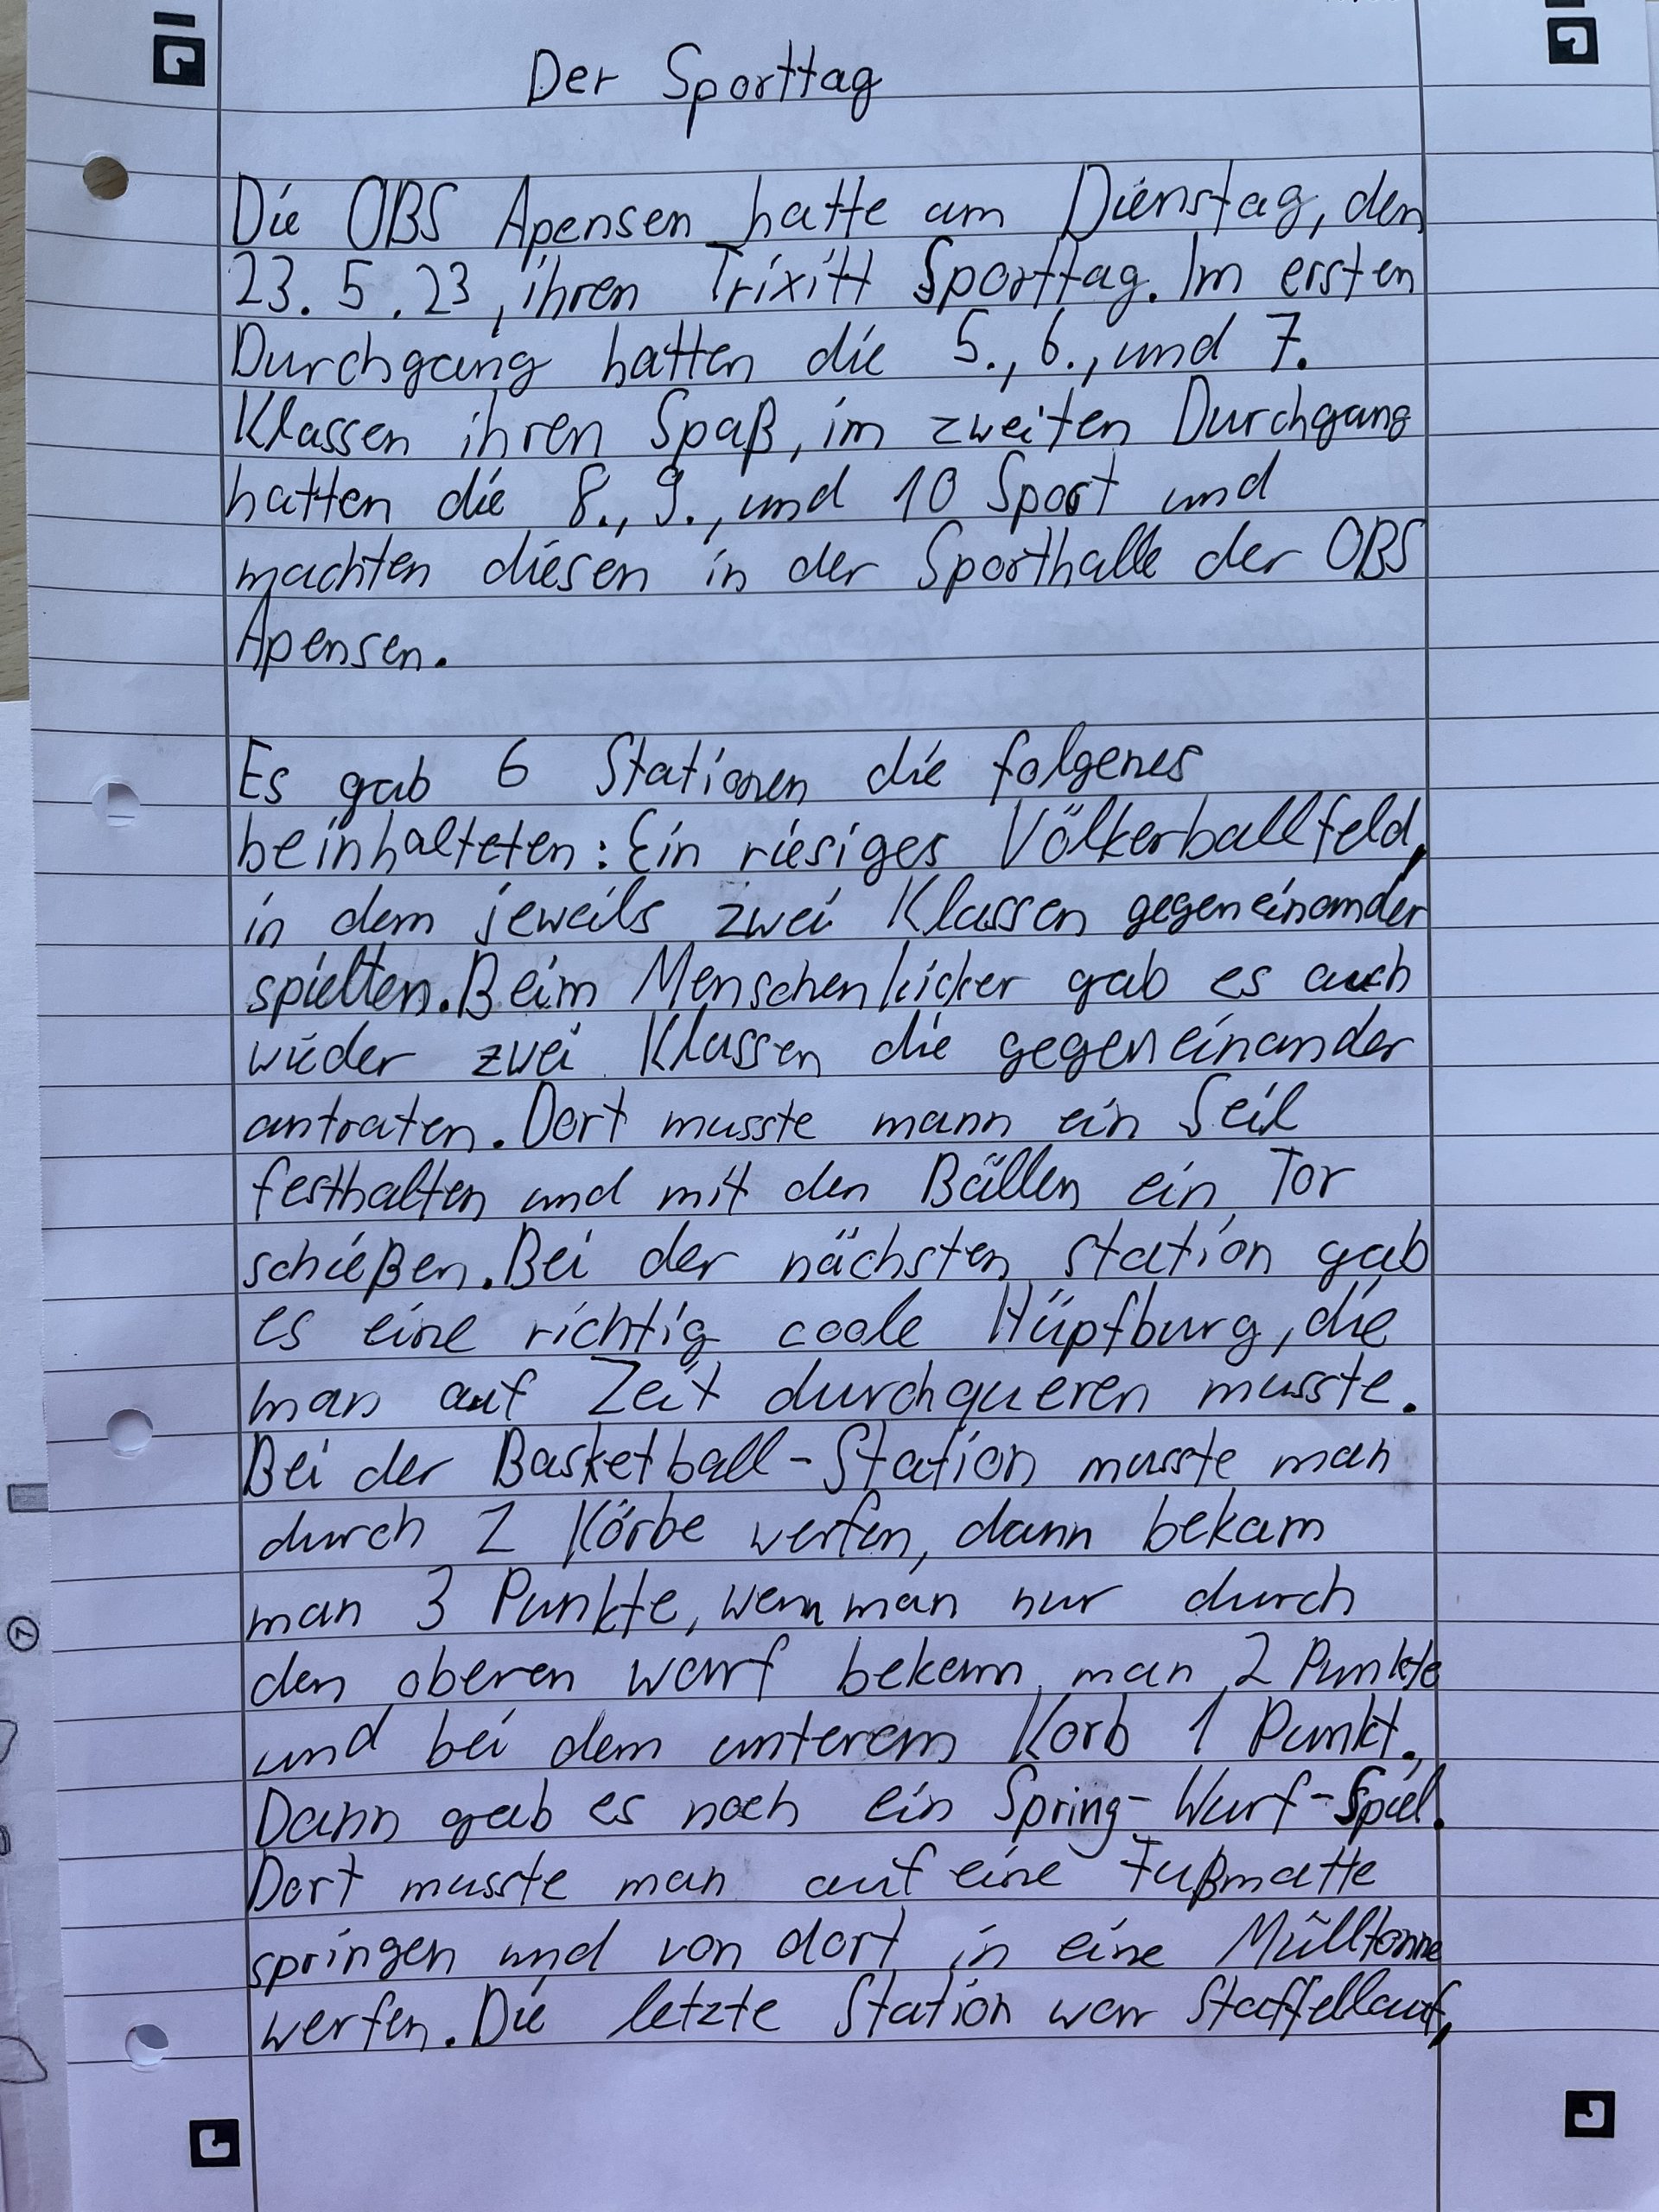 Der Sporttag
Die OBS Apensen hatte am Dienstag, den
23.5.23, ihren Trixitt Sporttag. Im ersten
Durchgang hatten die 5., 6., und 7.
Klassen ihren Spaß, im zweiten Durchgang
hatten die 8., 9., und 10 Sport und
machten diesen in der Sporthalle der OBS
Apensen.
Es gab 6 Stationen die folgenes
beinhalteten: Ein riesiges Völkerballfeld,
in dem jeweils zwei Klassen gegeneinander
spielten. Beim Menschenkicker gab es auch
wieder zwei Klassen die gegeneinander
antraten. Dort musste mann ein Seil
festhalten und mit den Bällen ein Tor
schießen. Bei der nächsten station gab
es eine richtig coole Hüpfburg, die
man auf Zeit durchqueren musste.
Bei der Basketball-Station musste man
durch 2 Körbe werfen, dann bekam
man 3 Punkte, wenn man nur durch
den oberen warf bekam man 2 Punkte
und bei dem unterem Korb 1 Punkt.
Dann gab es noch ein Spring-Wurf-Spiel.
Dort musste man auf eine Fußmatte
springen und von dort in eine Mülltonne
werfen. Die letzte Station war Staffellauf,
7